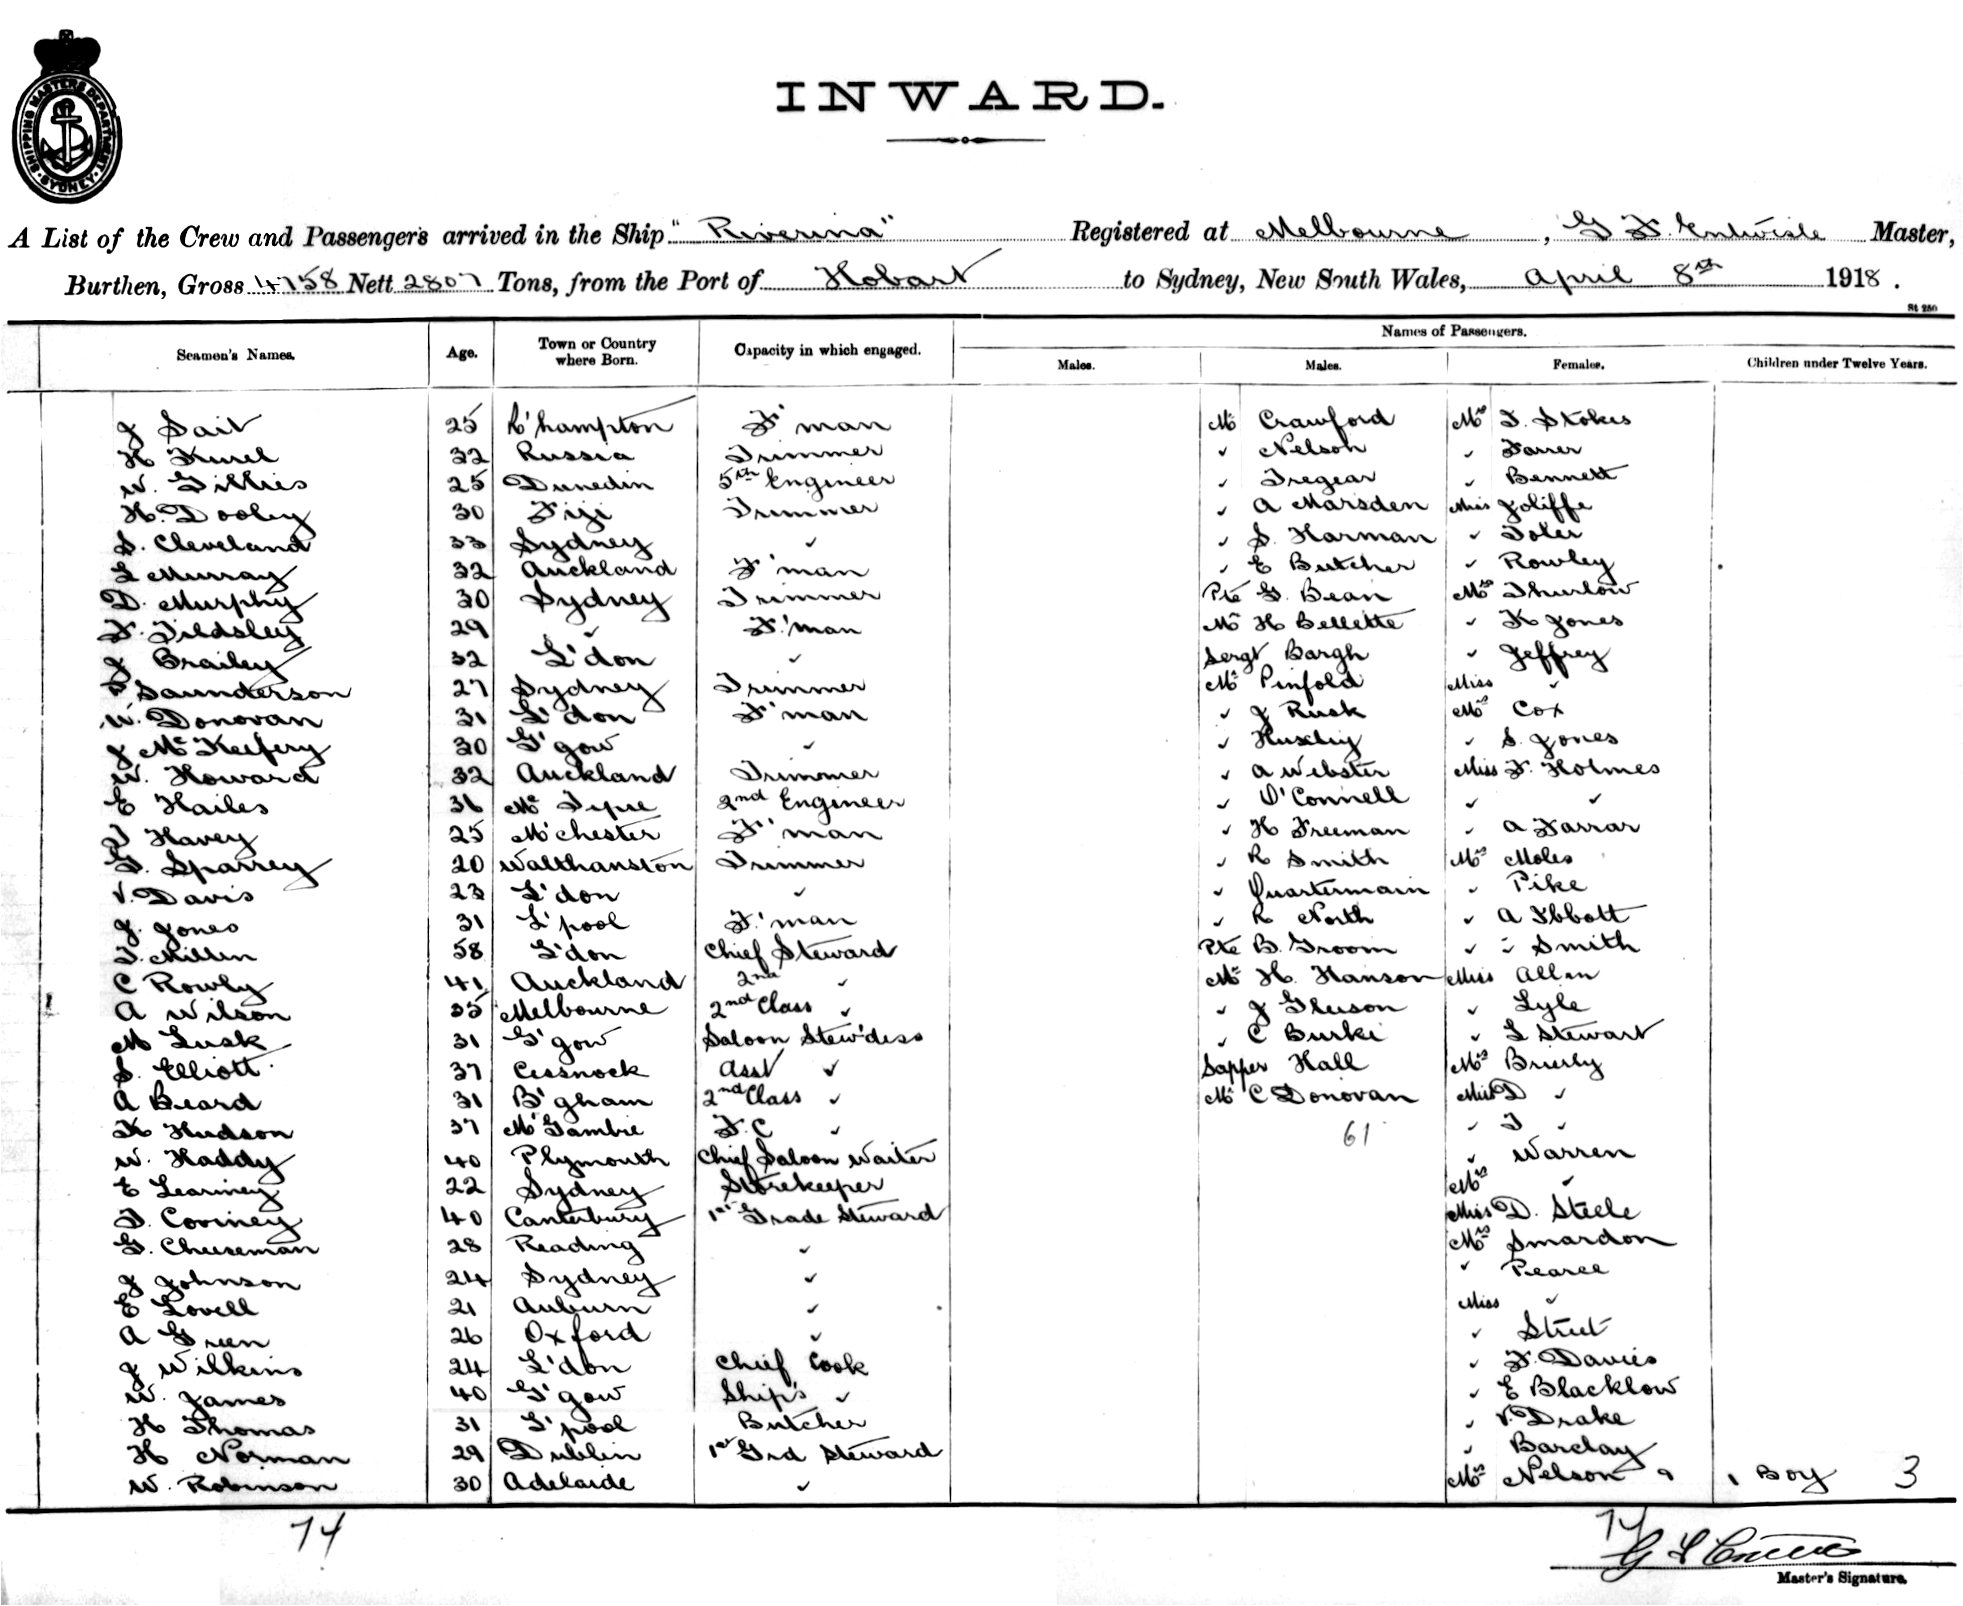 SHIPPING MASTERS DEPARTMENT SYDNEY
INWARD.
A List of the Crew and Passengers arrived in the Ship "Riverina" Registered at Melbourne, G F. Entwisle Master,
Burthen, Gross 4758 Nett 2807 Tons, from the Port of Hobart to Sydney, New South Wales, April 8th 1918.
St 250
Seamen's Names. Age. Town or Country where Born. Capacity in which engaged. Names of Passengers.
Males. Males. Females. Children under Twelve Years.
J Sait 25 R'hampton F'man Mr Crawford Mrs F. Stokes
H 32 Russia Trimmer ✓ Nelson ✓ Farrer
W. Gillies 25 Dunedin 5th Engineer ✓ Tregear ✓ Bennett
H. Dooley 30 Fiji Trimmer ✓ A Marsden Miss Joliffe
S. Cleveland 33 Sydney ✓ ✓ S. Harman ✓
L Murray 32 Auckland F'man ✓ E Butcher ✓ Rowley
D. Murphy 30 Sydney Trimmer Pte G. Bean Mrs Thurlow
F. Tildsley 29 ✓ F.'man Mr H Bellette ✓ K Jones
J Brailey 32 L'don ✓ Sergt Bargh ✓ Jeffrey
P Saunderson 27 Sydney Trimmer Mr Pinfold Miss ✓
W. Donovan 31 L'don F'man ✓ J Rusk Mrs Cox
J McKeefery 30 G'gow ✓ ✓ Huxley ✓ S. Jones
W. Howard 32 Auckland Trimmer ✓ A Webster Miss F. Holmes
E Hailes 36 2nd Engineer ✓ O'Connell ✓ ✓
J Havey 25 M'chester F'man ✓ H Freeman ✓ A Farrar
G. Sparrey 20 Walthanston Trimmer ✓ R Smith Mrs Moles
V. Davis 23 L'don ✓ ✓ Quartermain ✓ Pike
J. Jones 31 L'pool F.'man ✓ R North ✓ A Ibbott
T. Millin 58 L'don Chief Steward Pte B. Groom ✓ Smith
C Rowly 41 Auckland 2nd ✓ Mr H. Hanson Miss Allen
A Wilson 35 Melbourne 2nd Class ✓ ✓ J Gleeson ✓ Lyle
M Lusk 31 G'gow Saloon Stew'dess ✓ C Burke ✓ L Stewart
S. Elliott 37 Cessnock Asst ✓ Sapper Hall Mrs Brierly
A Beard 31 B'gham 2nd Class ✓ Mr C Donovan Miss D ✓
K Hudson 37 Mt Gambie F.C ✓ ✓ J ✓
61
W. Haddy 40 Plymouth Chief Saloon Waiter ✓ Warren
E Leariney 22 Sydney Storekeeper Mrs ✓
J. Coviney 40 Canterbury 1st Grade Steward Miss D. Steele
G. Cheeseman 28 Reading ✓ Mrs Smardon
J Johnson 24 Sydney ✓ ✓ Pearce
E Lovell 21 Auburn ✓ Miss ✓
A Green 26 Oxford ✓ ✓ Street
J Wilkins 24 L'don Chief Cook ✓ F. Davies
W. James 40 G'gow Ship's ✓ ✓ E Blacklow
H Thomas 31 L'pool Butcher ✓ V. Drake
H Norman 29 Dublin 1st Grd Steward ✓ Barclay
W. Robinson 30 Adelaide ✓ Mrs Nelson & 1 Boy 3
74 74
Master's Signature.